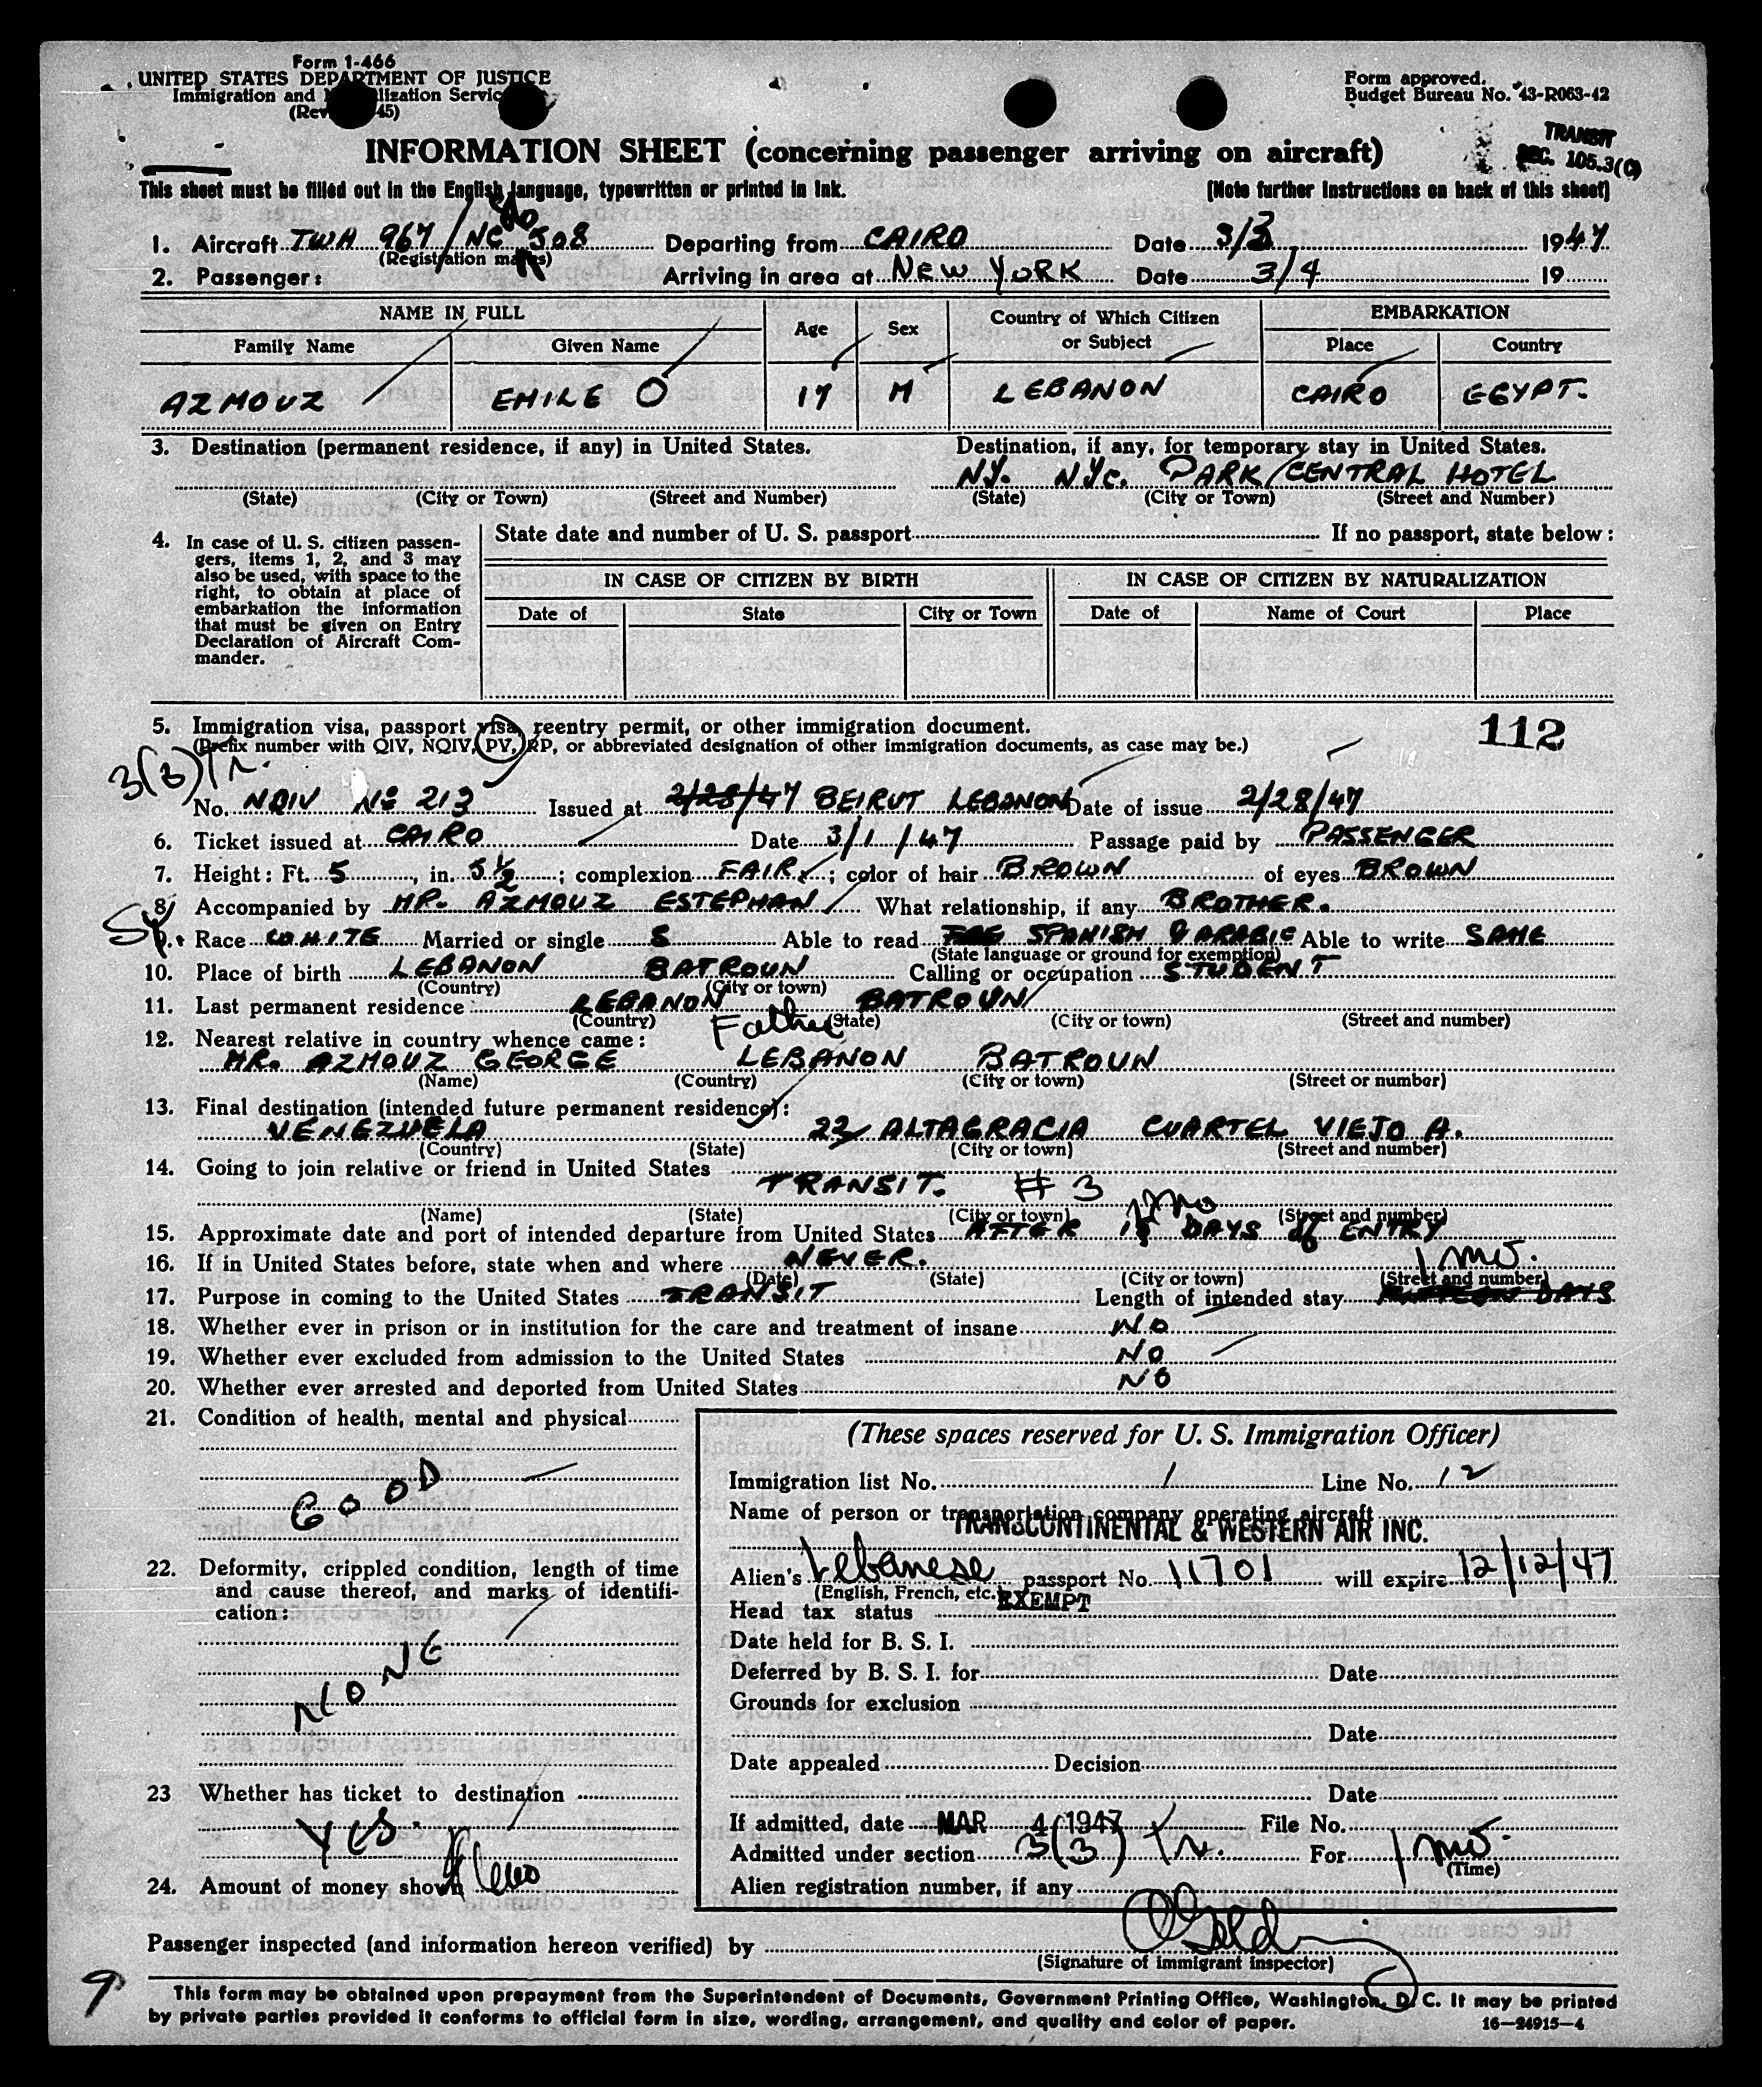 Form 1-466
UNITED STATES DEPARTMENT OF JUSTICE
Immigration and Naturalization Service
(Rev. 45)
Form approved.
Budget Bureau No. 43-R063-42
TRANSIT
SEC. 105.3(C)
INFORMATION SHEET (concerning passenger arriving on aircraft)
This sheet must be filled out in the English language, typewritten or printed in ink. (Note further instructions on back of this sheet)
1. Aircraft TWA 967/NC 508 Departing from CAIRO Date 3/3 1947
(Registration marks)
2. Passenger: Arriving in area at NEW YORK Date 3/4 19
NAME IN FULL Age Sex Country of Which Citizen or Subject EMBARKATION
Family Name Given Name Place Country
AZMOUZ EMILE O 17 M LEBANON CAIRO EGYPT.
3. Destination (permanent residence, if any) in United States. Destination, if any, for temporary stay in United States.
NY. NYC. PARK CENTRAL HOTEL
(State) (City or Town) (Street and Number) (State) (City or Town) (Street and Number)
4. In case of U. S. citizen passengers, items 1, 2, and 3 may also be used, with space to the right, to obtain at place of embarkation the information that must be given on Entry Declaration of Aircraft Commander.
State date and number of U. S. passport If no passport, state below:
IN CASE OF CITIZEN BY BIRTH IN CASE OF CITIZEN BY NATURALIZATION
Date of State City or Town Date of Name of Court Place
5. Immigration visa, passport visa, reentry permit, or other immigration document. 112
(Prefix number with QIV, NQIV, PV, RP, or abbreviated designation of other immigration documents, as case may be.)
3(3) Tr.
No. NQIV No 213 Issued at 2/28/47 BEIRUT LEBANON Date of issue 2/28/47
6. Ticket issued at CAIRO Date 3/1/47 Passage paid by PASSENGER
7. Height: Ft. 5, in. 5 1/2; complexion FAIR; color of hair BROWN of eyes BROWN
8. Accompanied by MR. AZMOUZ ESTEPHAN What relationship, if any BROTHER.
9. Race WHITE Married or single S Able to read SPANISH & ARABIC Able to write SAME
(State language or ground for exemption)
10. Place of birth LEBANON BATROUN Calling or occupation STUDENT
(Country) (City or town)
11. Last permanent residence LEBANON BATROUN
(Country) (State) (City or town) (Street and number)
12. Nearest relative in country whence came: Father
MR. AZMOUZ GEORGE LEBANON BATROUN
(Name) (Country) (City or town) (Street or number)
13. Final destination (intended future permanent residence):
VENEZUELA 22 ALTAGRACIA CUARTEL VIEJO A.
(Country) (State) (City or town) (Street and number)
14. Going to join relative or friend in United States
TRANSIT. #3
(Name) (State) (City or town) (Street and number)
15. Approximate date and port of intended departure from United States AFTER 1 mo DAYS of ENTRY
16. If in United States before, state when and where NEVER.
(Date) (State) (City or town) (Street and number)
1 mo.
17. Purpose in coming to the United States TRANSIT Length of intended stay DAYS
18. Whether ever in prison or in institution for the care and treatment of insane NO
19. Whether ever excluded from admission to the United States NO
20. Whether ever arrested and deported from United States NO
21. Condition of health, mental and physical
GOOD
22. Deformity, crippled condition, length of time and cause thereof, and marks of identification:
NONE
23 Whether has ticket to destination
YES.
24. Amount of money shown
(These spaces reserved for U. S. Immigration Officer)
Immigration list No. 1 Line No. 12
Name of person or transportation company operating aircraft
TRANSCONTINENTAL & WESTERN AIR INC.
Alien's Lebanese passport No. 11701 will expire 12/12/47
(English, French, etc.)
Head tax status EXEMPT
Date held for B. S. I.
Deferred by B. S. I. for Date
Grounds for exclusion
Date
Date appealed Decision
Date
If admitted, date MAR 4 1947 File No.
Admitted under section 3(3) Tr. For 1 mo.
(Time)
Alien registration number, if any
Passenger inspected (and information hereon verified) by
(Signature of immigrant inspector)
9
This form may be obtained upon prepayment from the Superintendent of Documents, Government Printing Office, Washington, D. C. It may be printed
by private parties provided it conforms to official form in size, wording, arrangement, and quality and color of paper. 16—24915-4